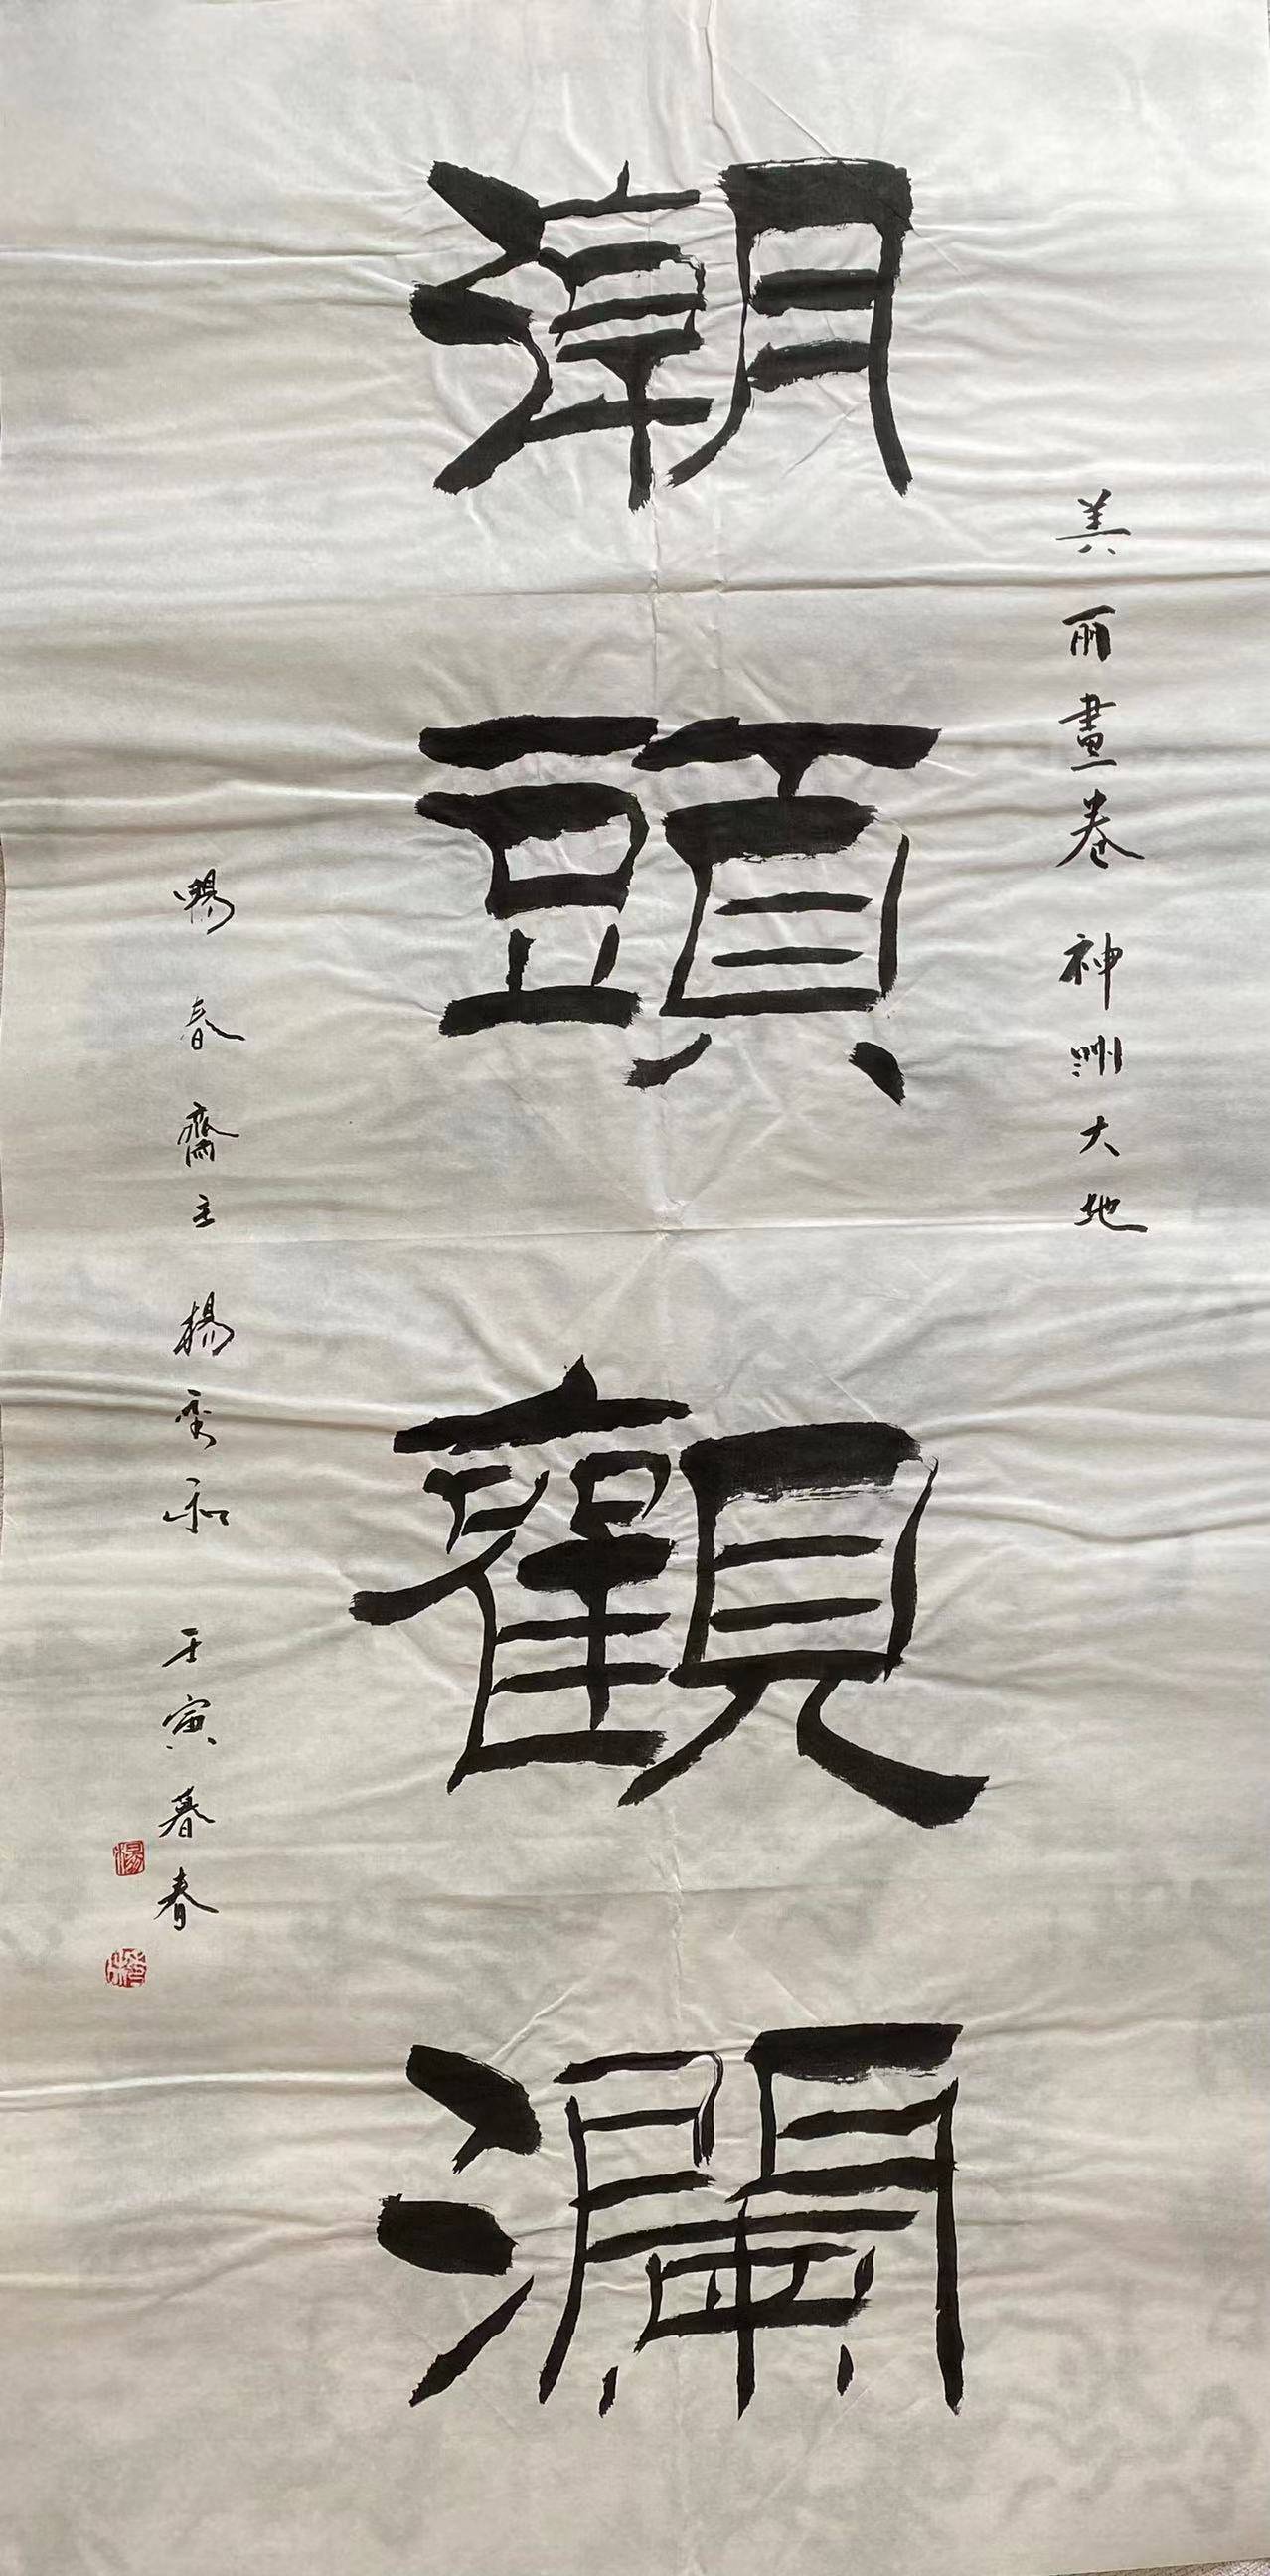 美丽畫卷神洲大地
潮頭觀瀾
暢春齋主楊奕和壬寅暮春
楊